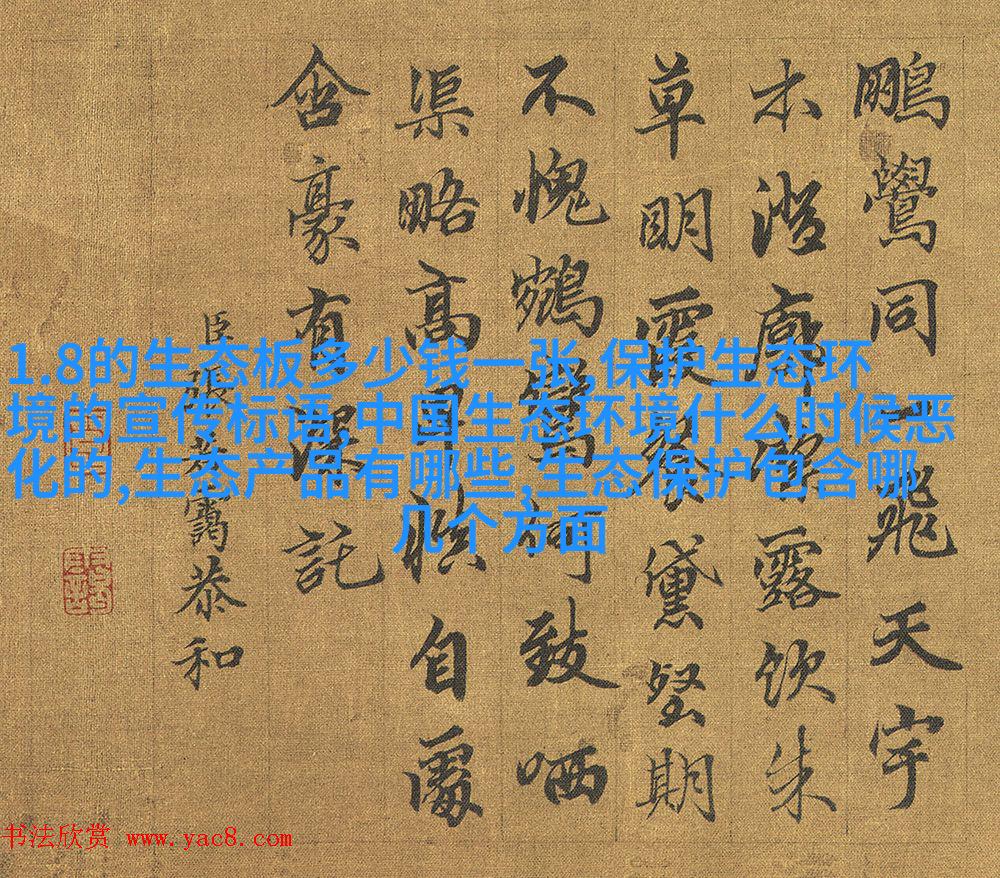 鵬鷽同一飛天宇
木廓露飲朱
草明霞黛壑期
不愧鵷鸞何致哂
渠略高自
含豪有深託
臣張若靄恭和
1.8的生态板多少钱一张,保护生态环
境的宣传标语,中国生态环境什么时候恶
化的,生态产品有哪些,生态保护包含哪
几个方面
书法欣赏 www.yac8.com